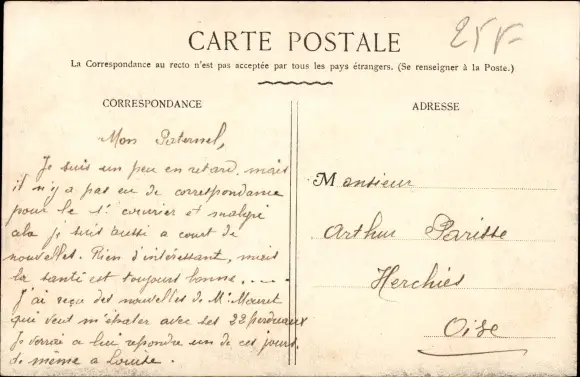 CARTE POSTALE
La Correspondance au recto n'est pas acceptée par tous les pays étrangers. (Se renseigner à la Poste.)
CORRESPONDANCE
Mon Paternel,
Je suis un peu en retard, mais
il n'y a pas eu de correspondance
pour le 1r courrier et malgré
cela je suis aussi a court de
nouvelles. Rien d'intéressant, mais
la santé est toujours bonne....
J'ai reçu des nouvelles de Mr Mouret
qui veut m'épater avec ses 22 perdreaux
Je verrai a lui repondre un de ces jours,
de même a Louise.
ADRESSE
Monsieur
Arthur Parisse
Herchies
Oise